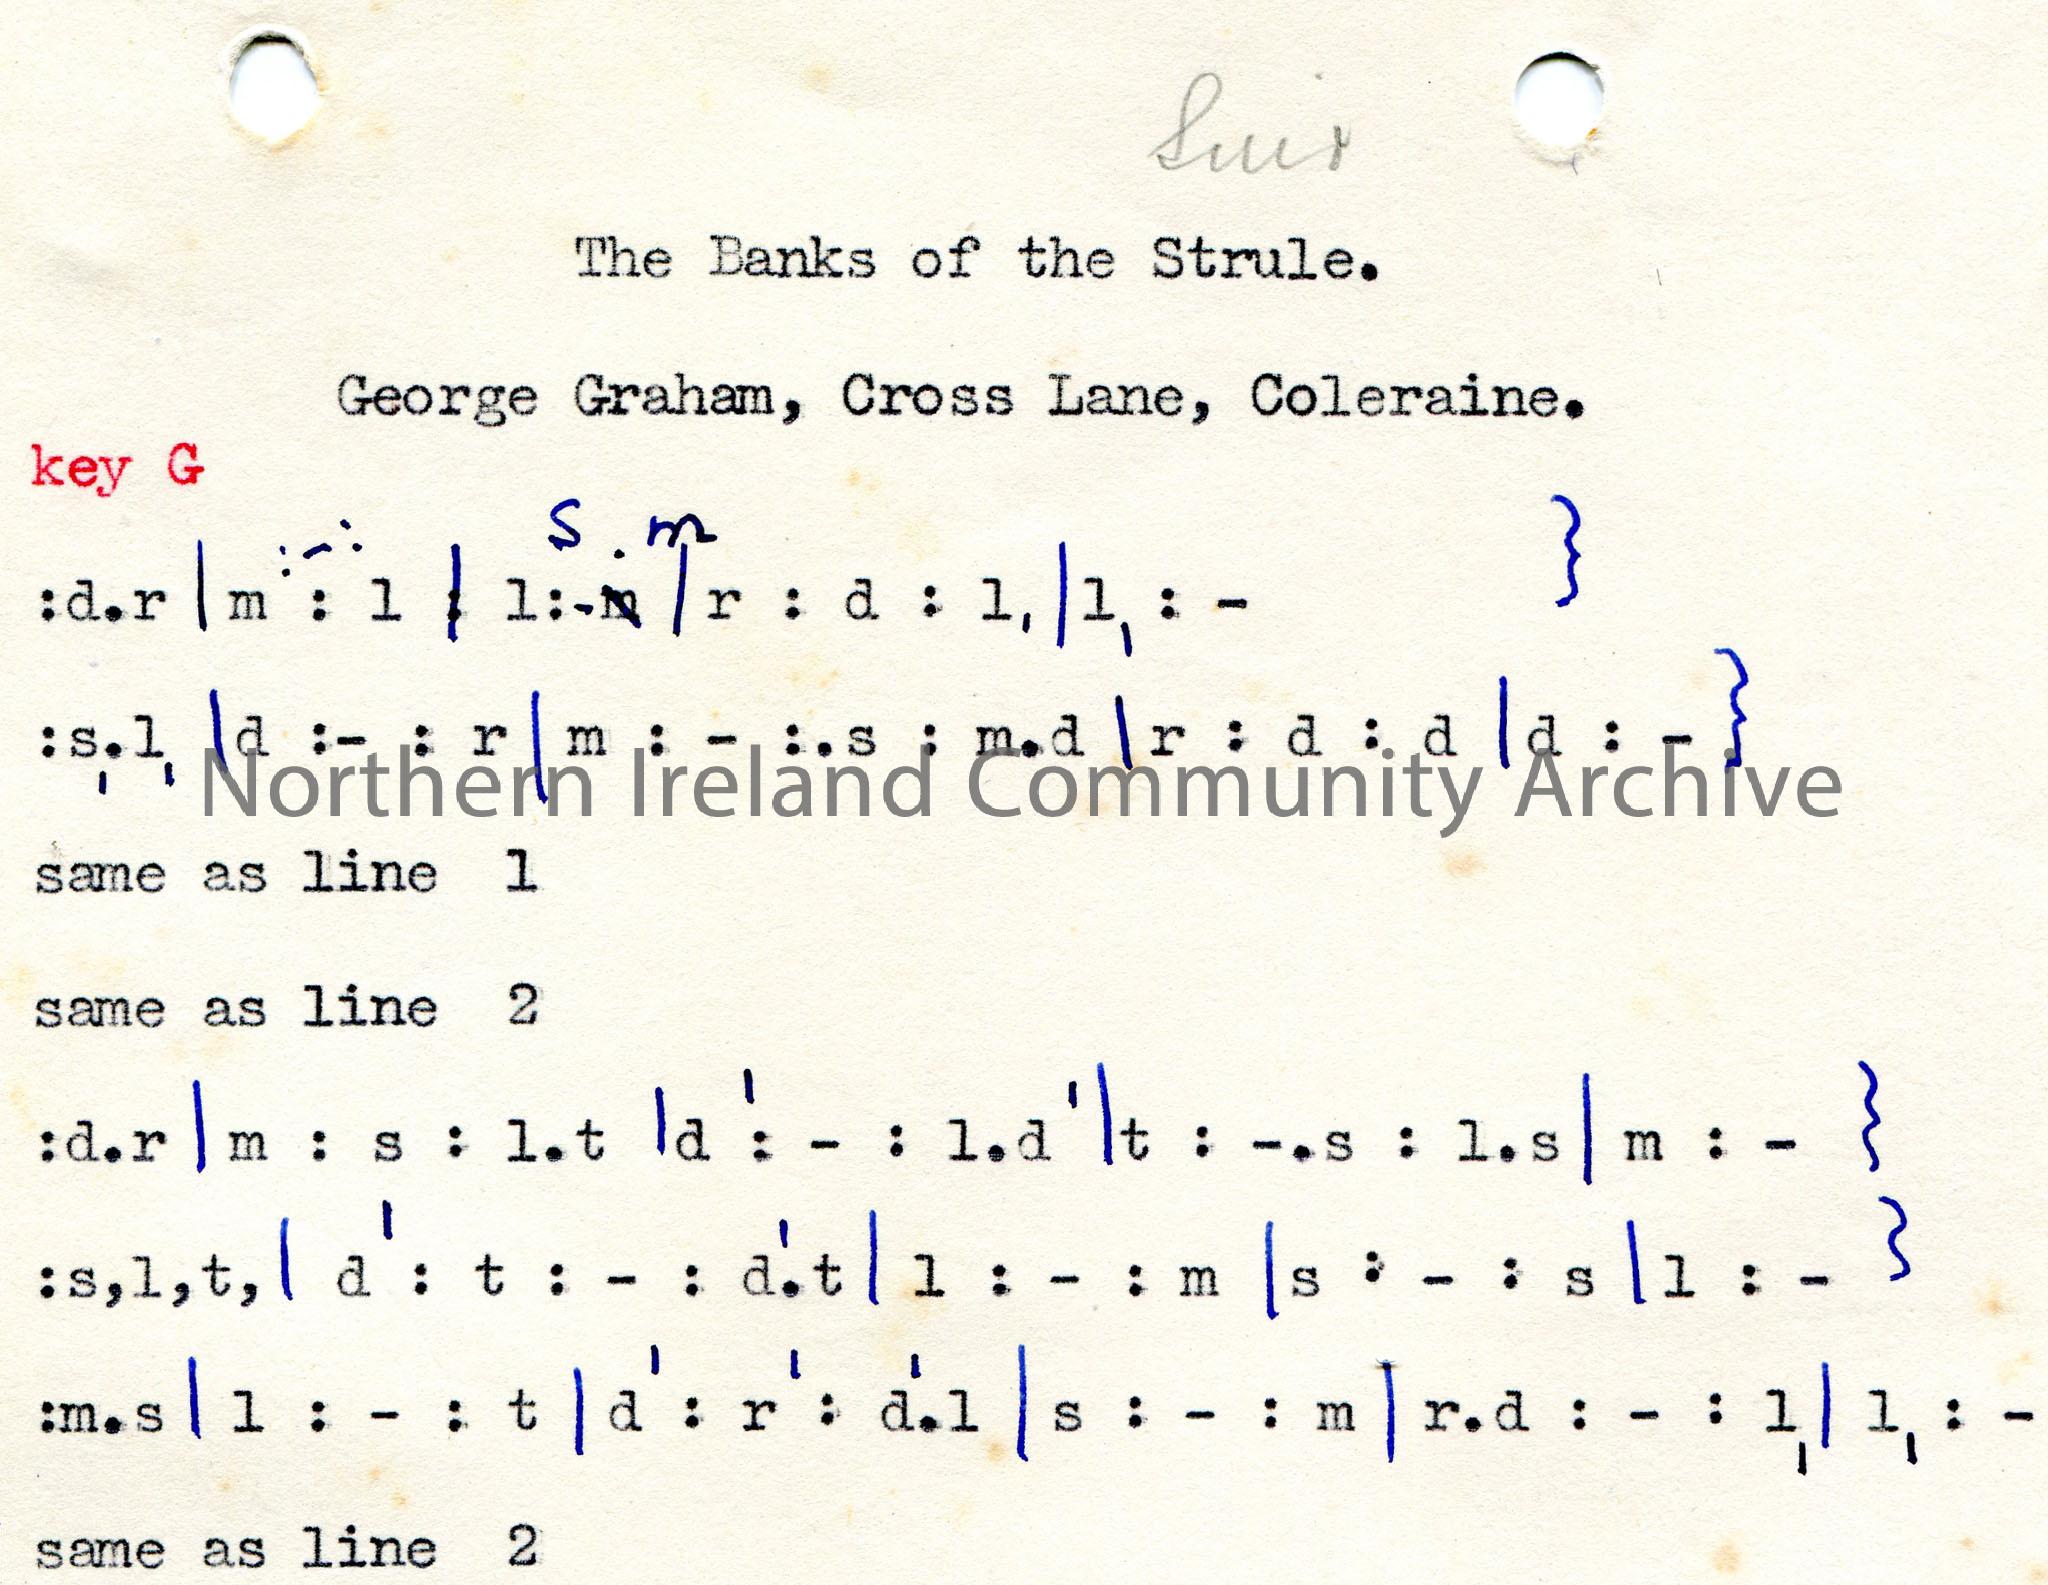 Suir
The Banks of the Strule.
George Graham, Cross Lane, Coleraine.
key G
s . m
:d.r | m : l | l:-m | r : d : l, | l, : - }
:s,.l, | d :- : r | m : - :.s : m.d | r : d : d | d : - }
Northern Ireland Community Archive
same as line 1
same as line 2
:d.r | m : s : l.t | d' : - : l.d' | t : -.s : l.s | m : - }
:s,l,t, | d' : t : - : d'.t | l : - : m | s : - : s | l : - }
:m.s | l : - : t | d' : r' : d'.l | s : - : m | r.d : - : l, | l, : -
same as line 2